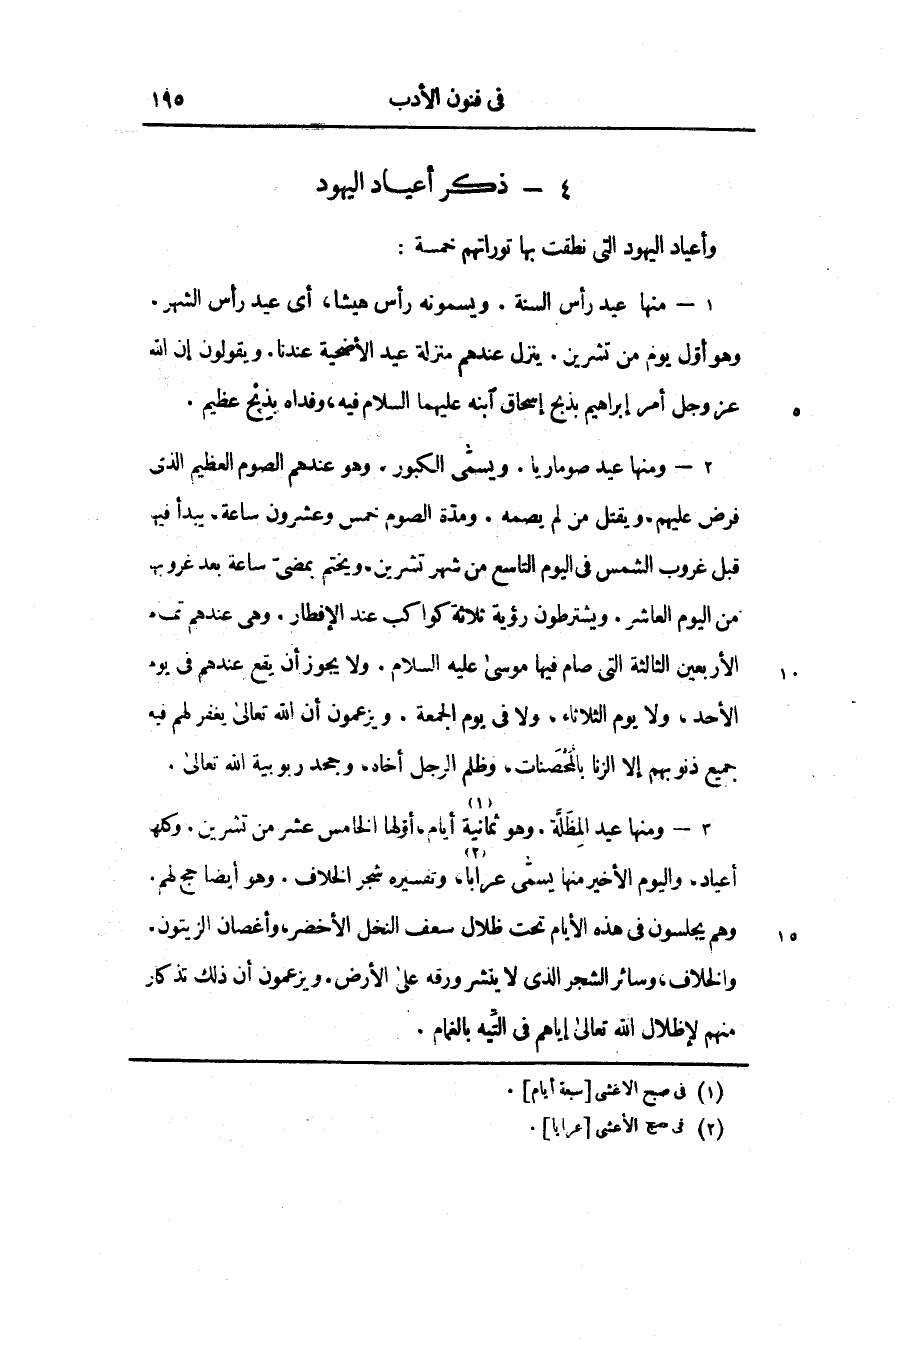 فى فنون الأدب ١٩٥
٤ — ذكر أعياد اليهود
وأعياد اليهود التى نطقت بها توراتهم خمسة :
١ — منها عيد رأس السنة . ويسمونه رأس هيشا، أى عيد رأس الشهر .
وهو أوّل يوم من تشرين . ينزل عندهم منزلة عيد الأضحية عندنا . ويقولون إن الله
عز وجل أمر إبراهيم بذبح إسحاق آبنه عليهما السلام فيه، وفداه بِذِبْح عظيم . ٥
٢ — ومنها عيد صوماريا . ويسمّى الكبور . وهو عندهم الصوم العظيم الذى
فرض عليهم . ويقتل من لم يصمه . ومدّة الصوم خمس وعشرون ساعة . يبدأ فيها
قبل غروب الشمس فى اليوم التاسع من شهر تشرين . ويختم بمضىّ ساعة بعد غروبها
من اليوم العاشر . ويشترطون رؤية ثلاثة كواكب عند الإفطار . وهى عندهم تمام
الأربعين الثالثة التى صام فيها موسى عليه السلام . ولا يجوز أن يقع عندهم فى يوم ١٠
الأحد، ولا يوم الثلاثاء، ولا فى يوم الجمعة . ويزعمون أن الله تعالى يغفر لهم فيه
جميع ذنوبهم إلا الزنا بالمُحْصَنات، وظلم الرجل أخاه، وجحد ربوبية الله تعالى .
٣ — ومنها عيد المِظَلَّة . وهو ثمانية (١) أيام، أوّلها الخامس عشر من تشرين . وكلها
أعياد . واليوم الأخير منها يسمّى عرابا (٢)، وتفسيره شجر الخلاف . وهو أيضا حج لهم .
وهم يجلسون فى هذه الأيام تحت ظلال سعف النخل الأخضر، وأغصان الزيتون، ١٥
والخلاف، وسائر الشجر الذى لا ينتشر ورقه على الأرض . ويزعمون أن ذلك تذكار
منهم لإظلال الله تعالى إياهم فى التّيه بالغمام .
(١) فى صبح الاعشى [سبعة أيام] .
(٢) فى صبح الأعشى [عرايا] .